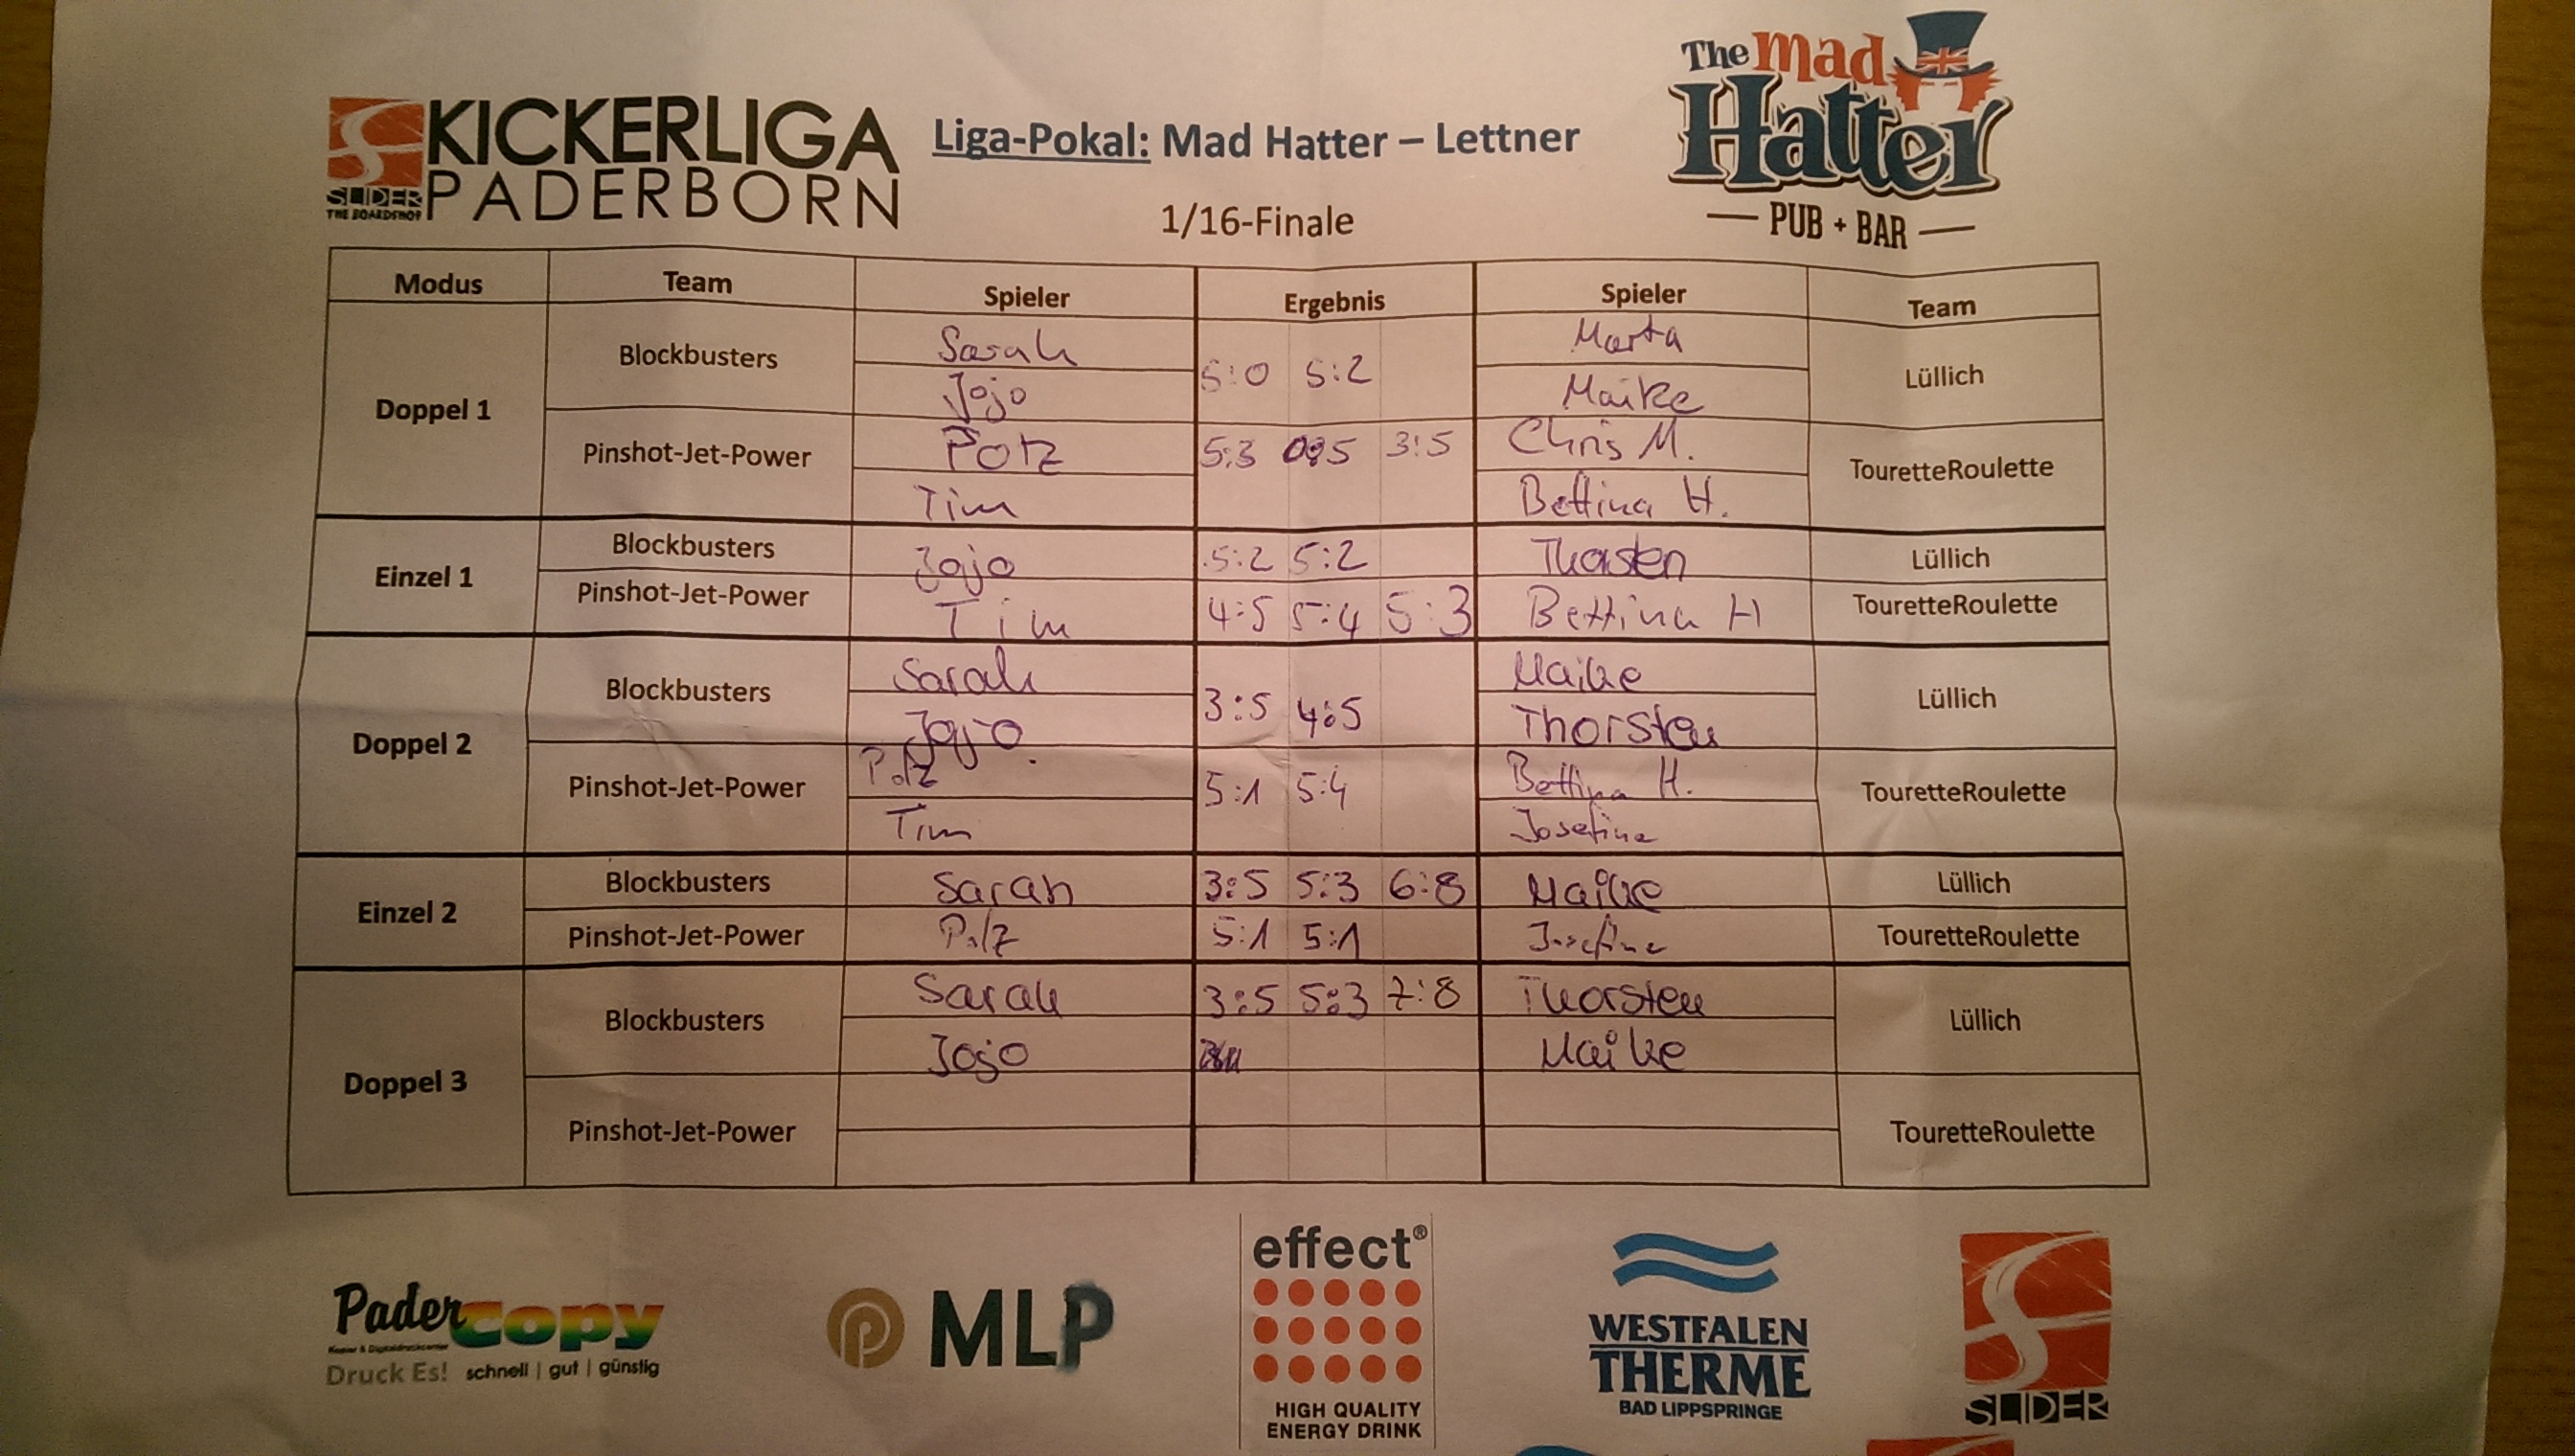 SLIDER
THE BOARDSHOP
KICKERLIGA
PADERBORN
Liga-Pokal: Mad Hatter – Lettner
1/16-Finale
The Mad
Hatter
PUB + BAR
Modus Team Spieler Ergebnis Spieler Team
Doppel 1
Blockbusters Sarah 5:0 5:2 Marta Lüllich
Jojo Maike
Pinshot-Jet-Power Potz 5:3 0:5 3:5 Chris M. TouretteRoulette
Tim Bettina H.
Einzel 1
Blockbusters Jojo 5:2 5:2 Thorsten Lüllich
Pinshot-Jet-Power Tim 4:5 5:4 5:3 Bettina H TouretteRoulette
Doppel 2
Blockbusters Sarah 3:5 4:5 Maike Lüllich
Jojo Thorsten
Pinshot-Jet-Power Potz 5:1 5:4 Bettina H. TouretteRoulette
Tim Josefine
Einzel 2
Blockbusters Sarah 3:5 5:3 6:8 Maike Lüllich
Pinshot-Jet-Power Potz 5:1 5:1 Josefine TouretteRoulette
Doppel 3
Blockbusters Sarah 3:5 5:3 7:8 Thorsten Lüllich
Jojo Maike
Pinshot-Jet-Power TouretteRoulette
PaderCopy
Druck Es! schnell | gut | günstig
MLP
effect®
HIGH QUALITY
ENERGY DRINK
WESTFALEN
THERME
BAD LIPPSPRINGE
SLIDER